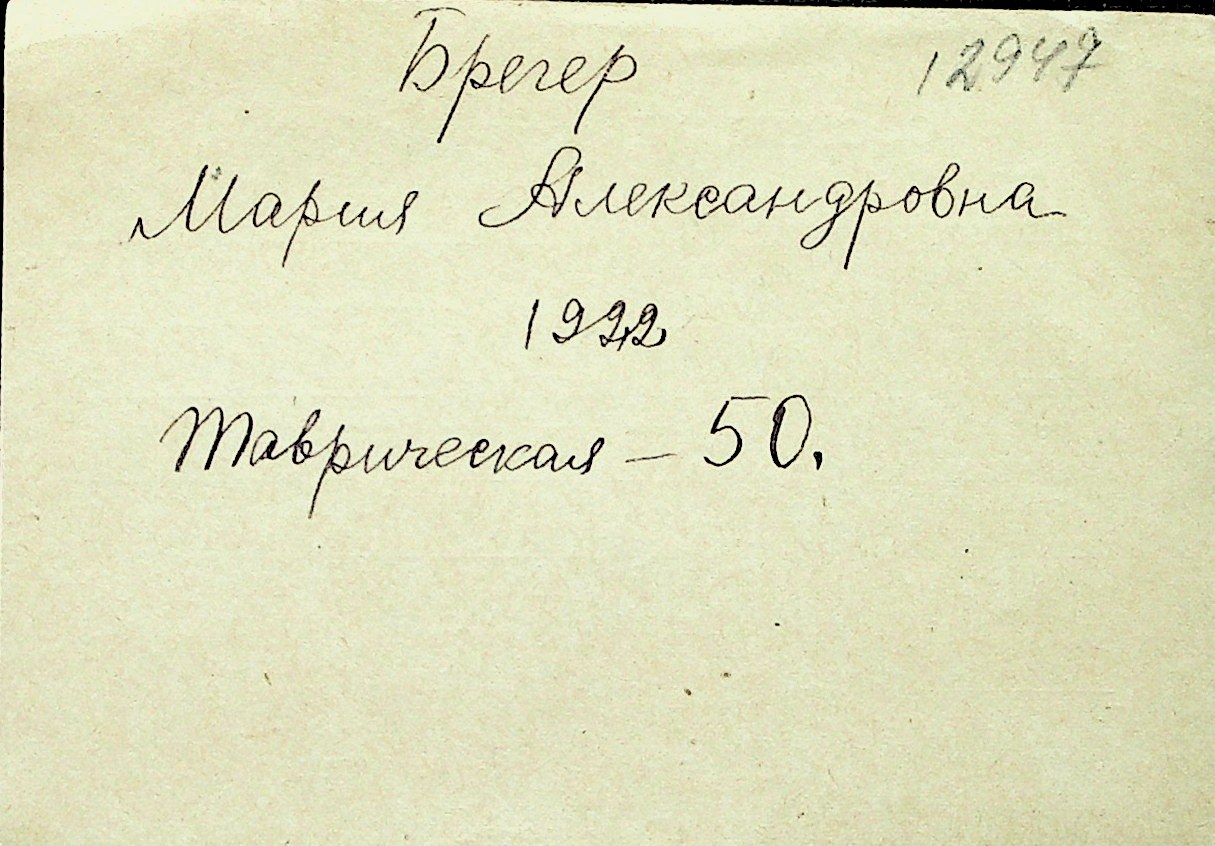 Брегер 12947
Мария Александровна
1922
Таврическая – 50.